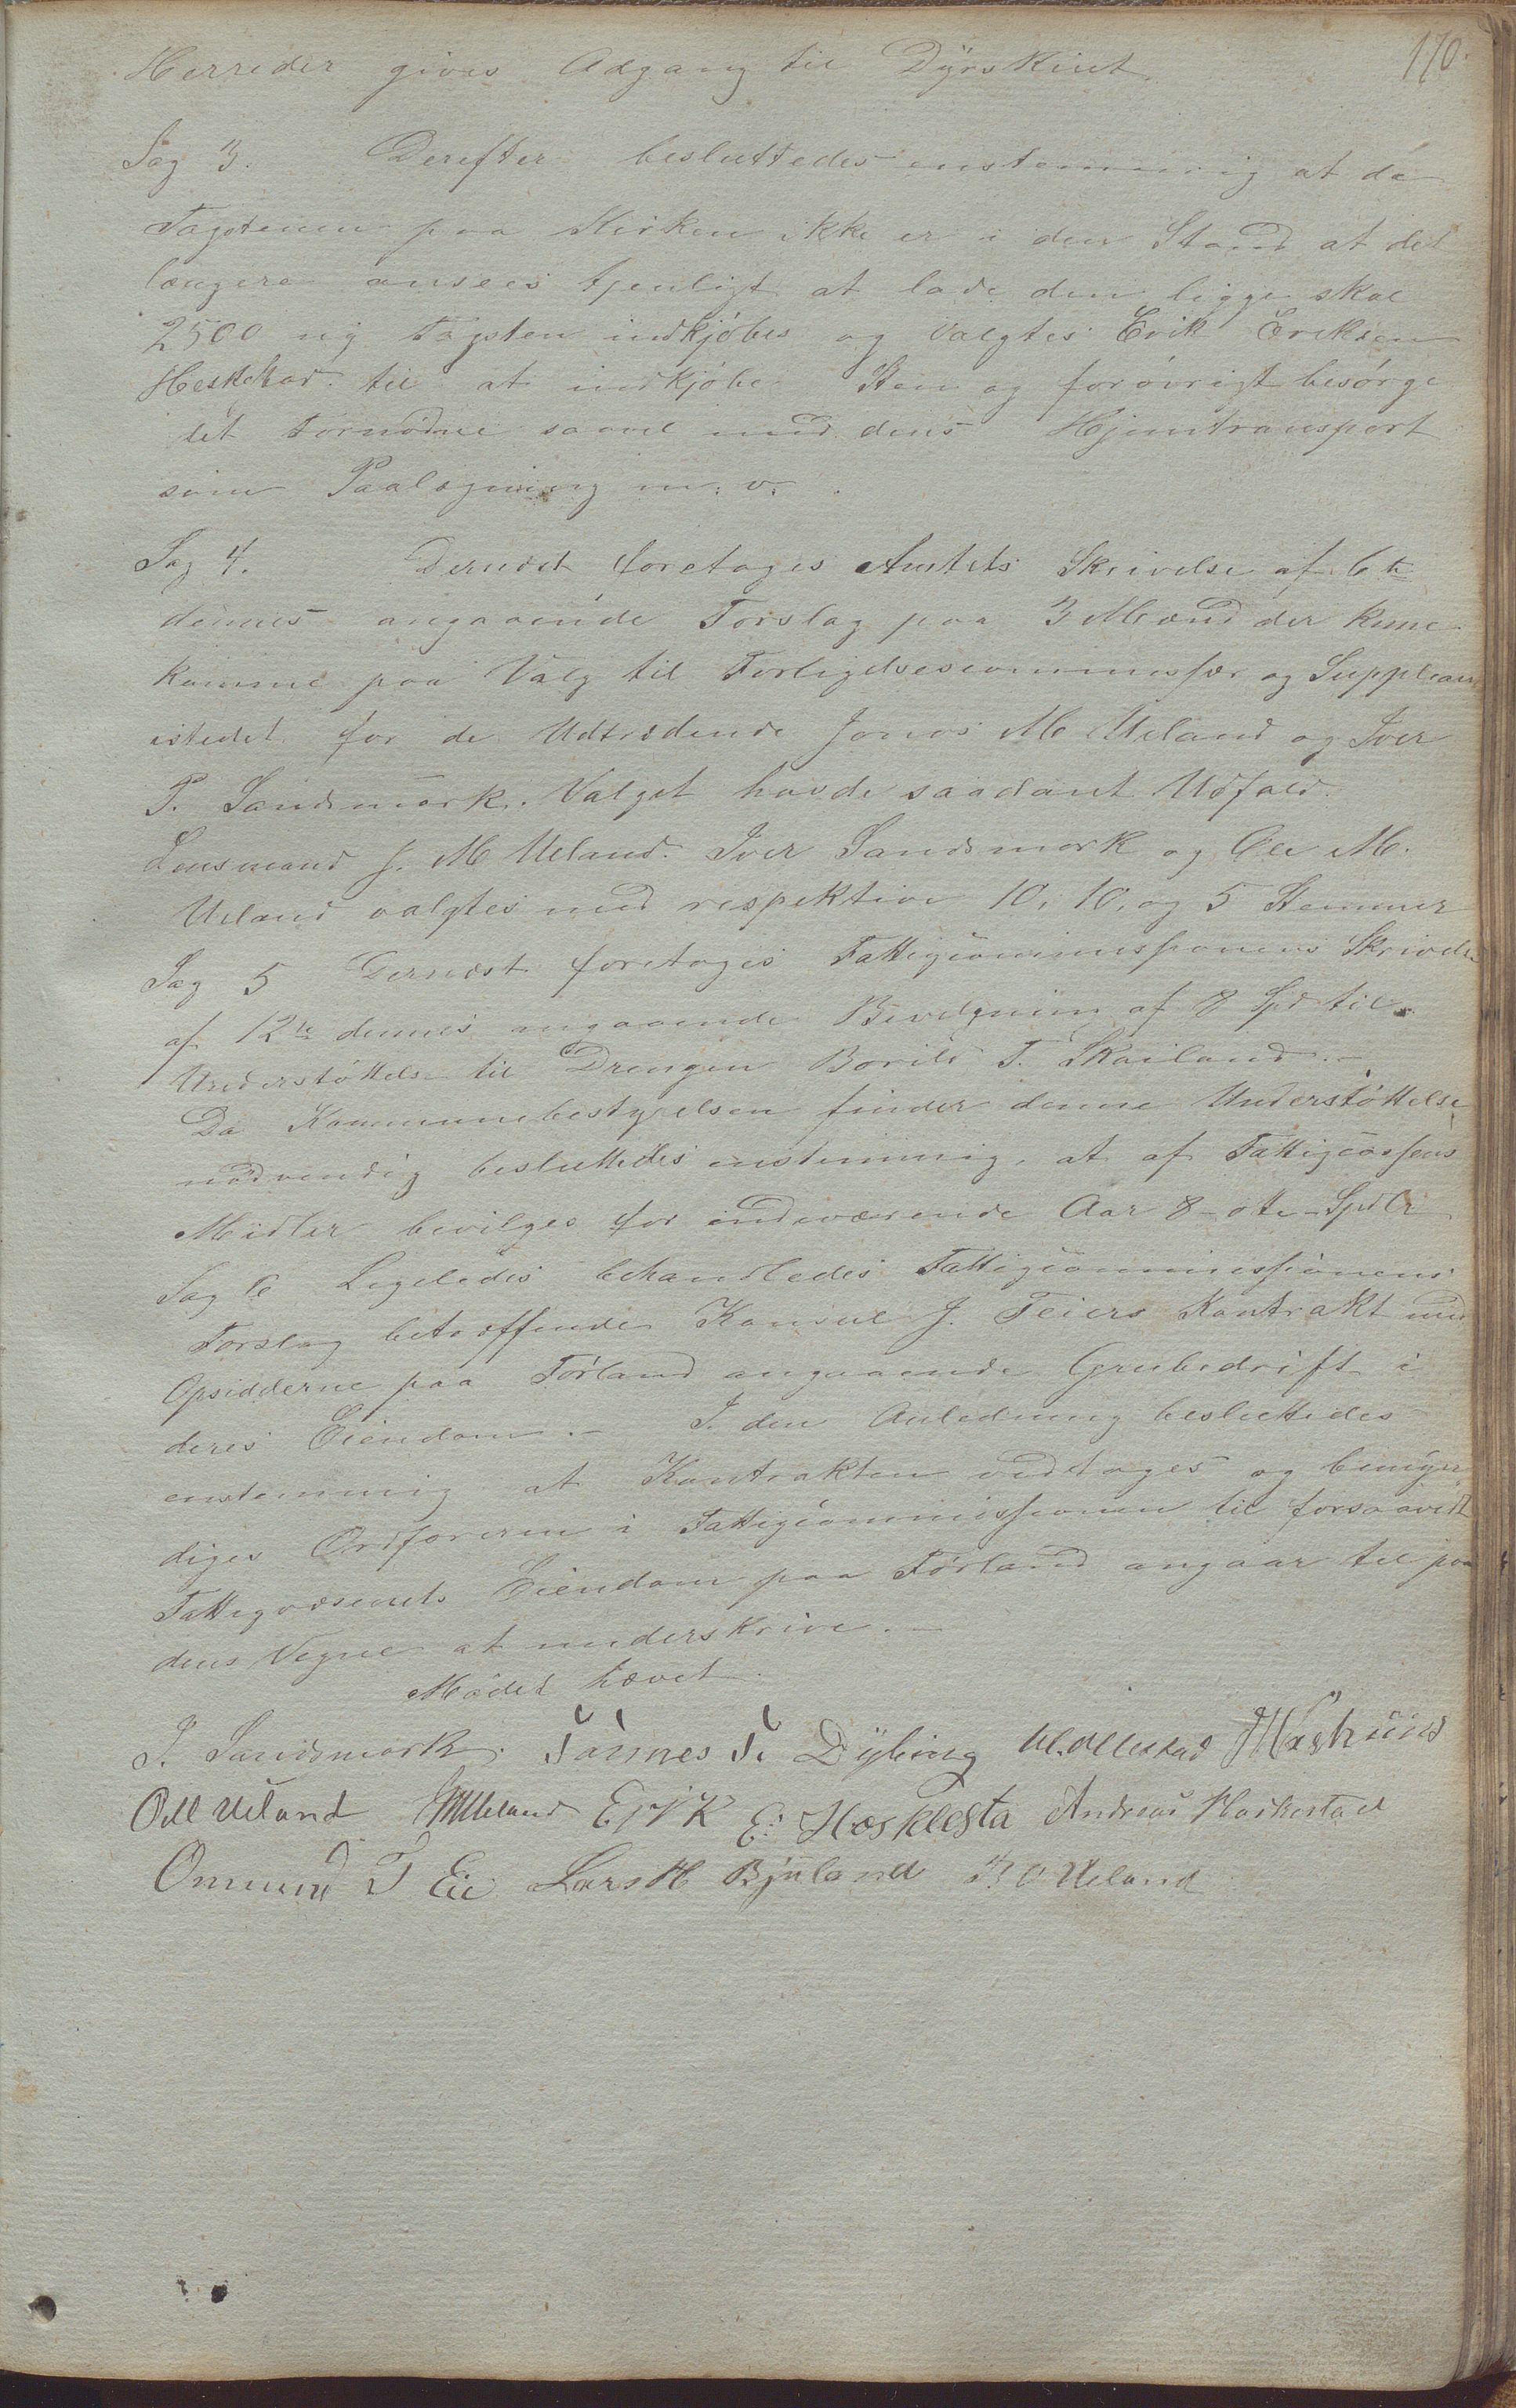 170.
Herreder gives Adgang til Dyrskuet.
Sag 3. Derefter besluttedes enstemmig at da
Tagstenen paa Kirken ikke er i den Stand at det
længere ansees tjenligt at lade den ligge skal
2500 ny Tagsten indkjøbes og valgtes Erik Eriksen
Heskestad til at indkjøbe Sten og forøvrigt besørge
det fornødne saavel med dens Hjemtransport
som Paalægning m. v.
Sag 4. Dernæst foretoges Amtets Skrivelse af 6te
dennes angaaende Forslag paa 3 Mænd der kune
komme paa Valg til Forligelsescommissær og Supplean
istedet for de Udtrædende Jonas M Ueland og Iver
P. Sandsmark. Valget havde saadant Udfald.
Lensmand J. M Ueland. Iver Sandsmark og Ole M.
Ueland valgtes med respektive 10, 10, og 5 Stemmer
Sag 5 Dernæst foretoges Fattigcommissionens Skrivelse
af 12te dennes angaaende Bevilgning af 8 Spd til
Understøttelse til Drengen Borild T. Skailand.-
Da Kommunebestyrelsen finder denne Understøttelse
nødvendig besluttedes enstemmig, at af Fattigcassens
Midler bevilges for indeværende Aar 8-otte-Spdlr
Sag 6 Ligeledes behandledes Fattigcommissionens
Forslag betræffende Konsul J. Feiers Kontrakt med
Opsidderne paa Førland angaaende Grubedrift i
deres Eiendom.- I den Anledning besluttedes
enstemmig at Kontrakten vedtages og bemyn-
diges Ordføreren i Fattigcommissionen til forsaavidt
Fattigvæsenets Eiendom paa Førland angaar til paa
dens Vegne at underskrive.-
Mødet hævet.
I. Sandsmark. Tønnes T. Dybing M. Ollestad
Oll Ueland JMUeland Erik E: Hæsklesta Andreas Haskestad
Ommund T Eie Lars H Bjuland B O Ueland